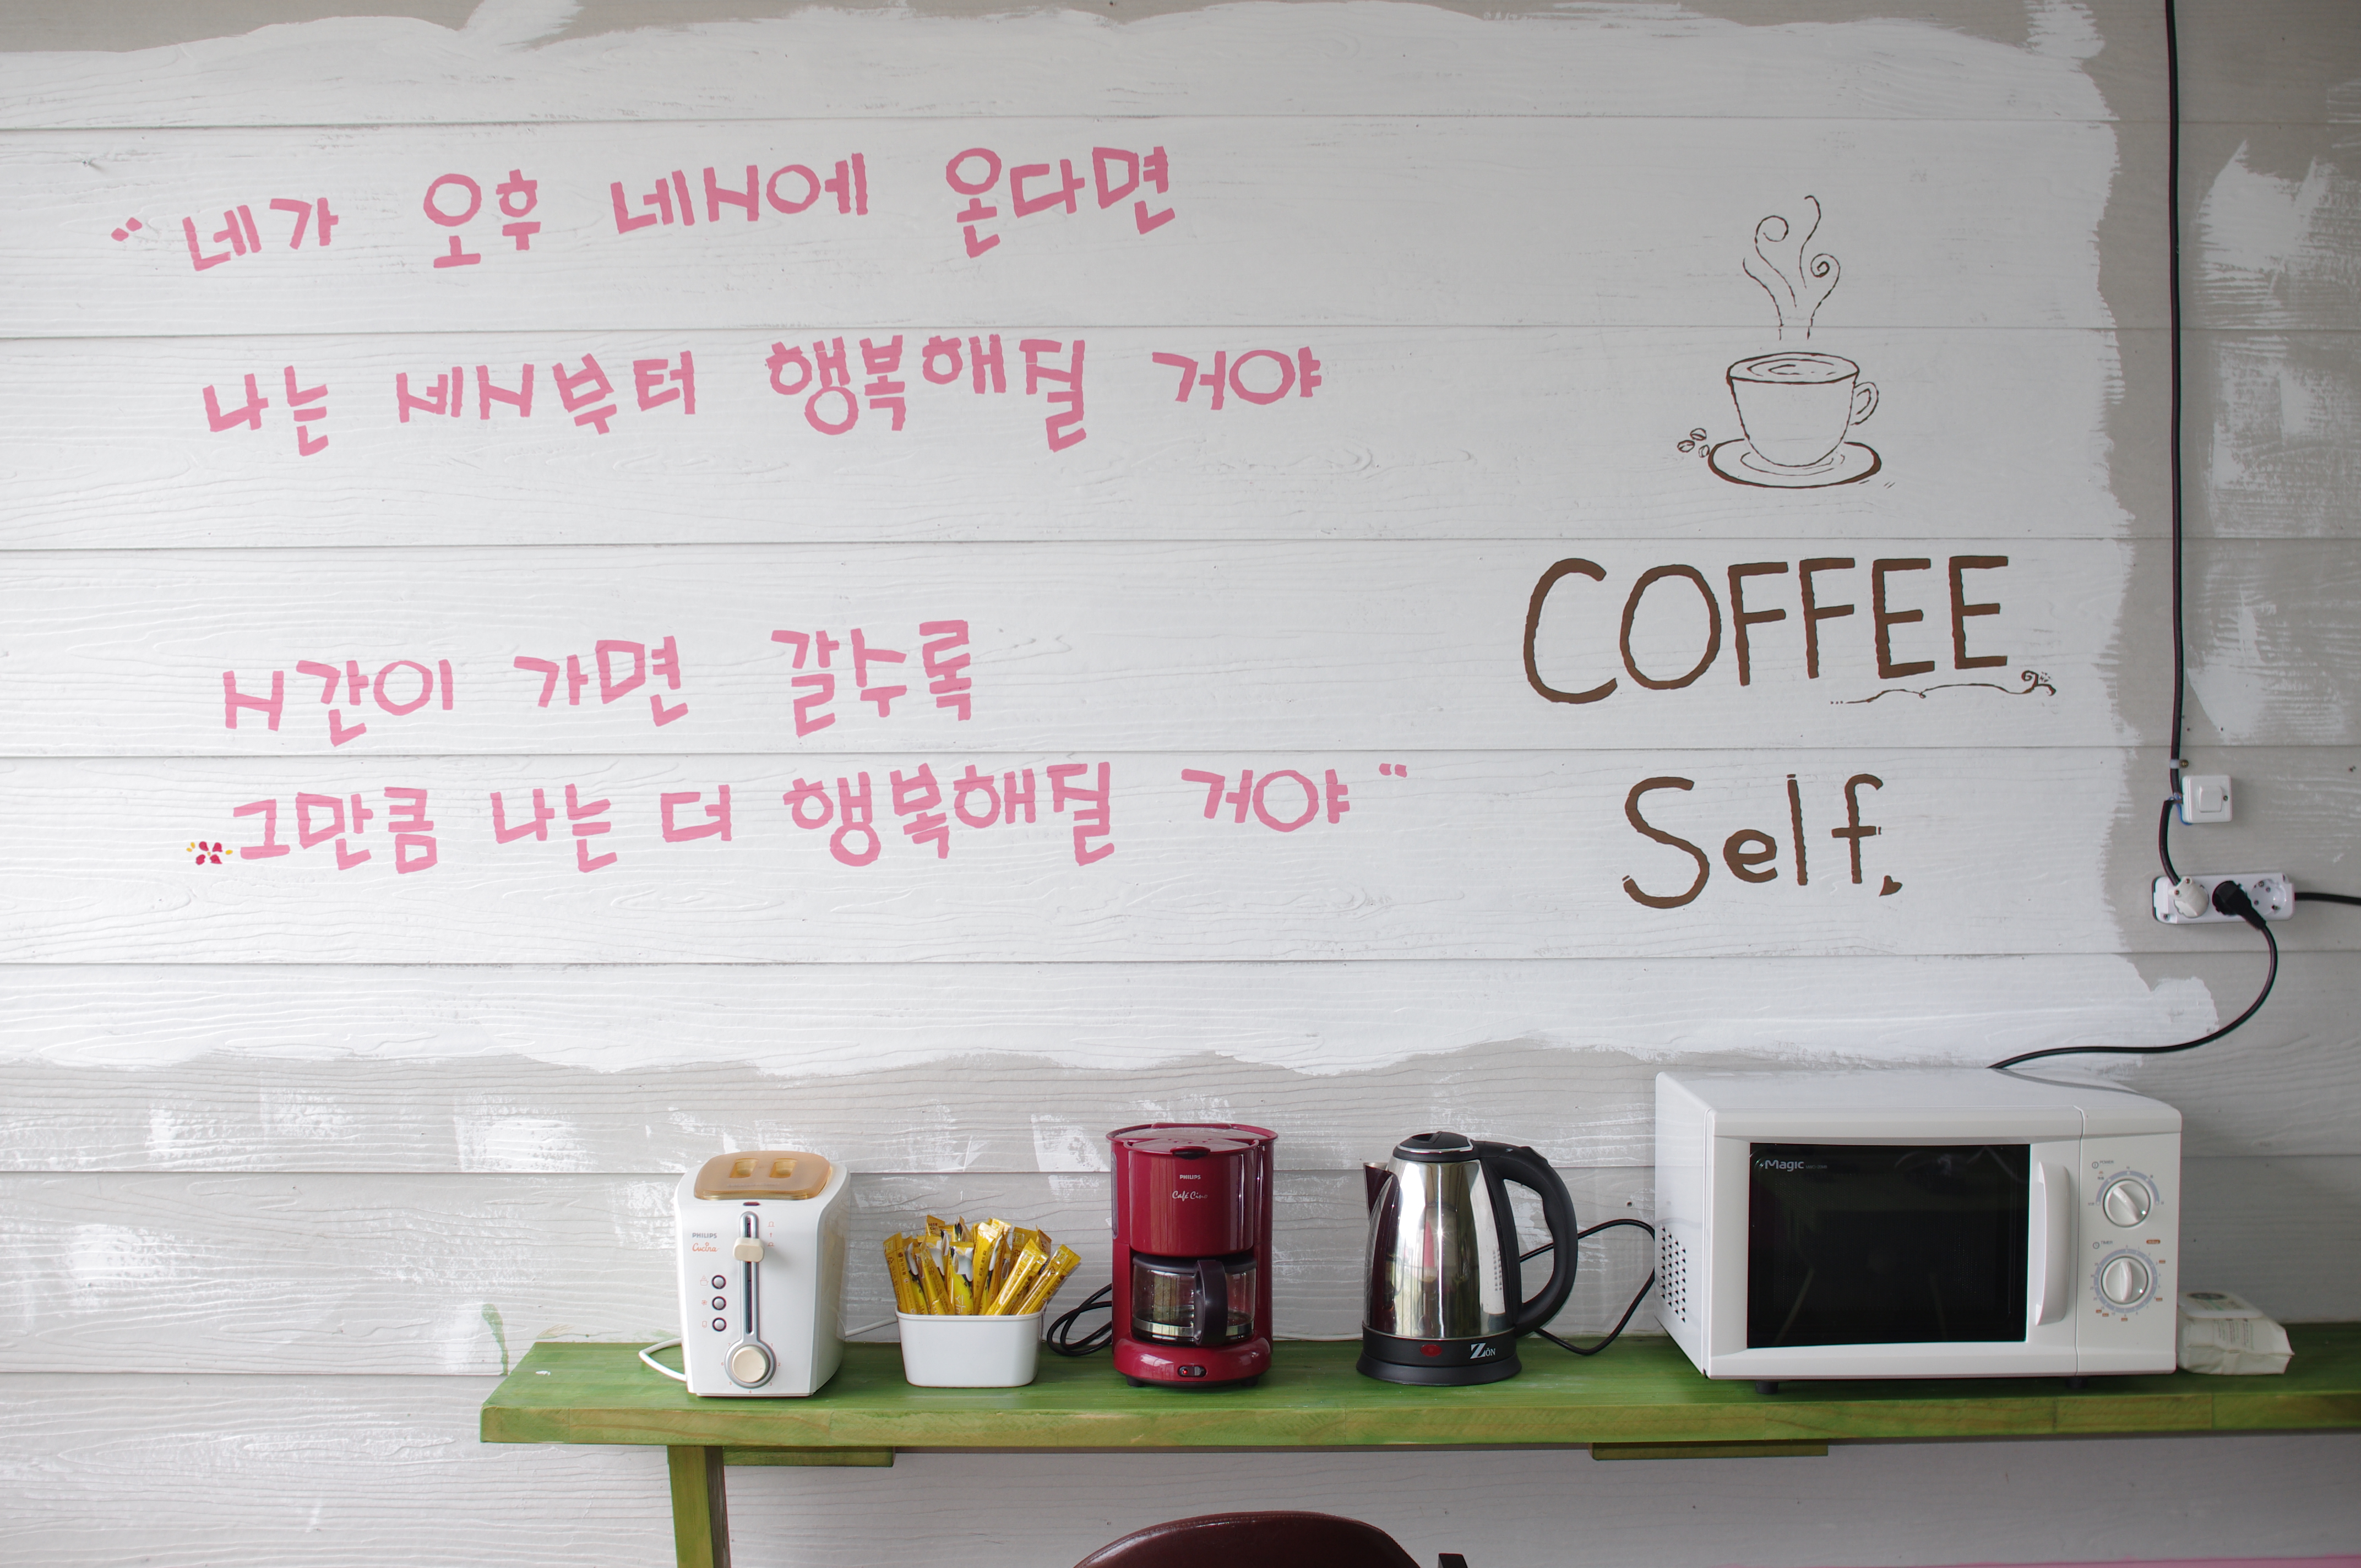 "네가 오후 네시에 온다면
나는 세시부터 행복해질 거야
시간이 가면 갈수록
그만큼 나는 더 행복해질 거야"
COFFEE
Self.
PHILIPS
Cucina
PHILIPS
Café Cino
ZÖN
Magic